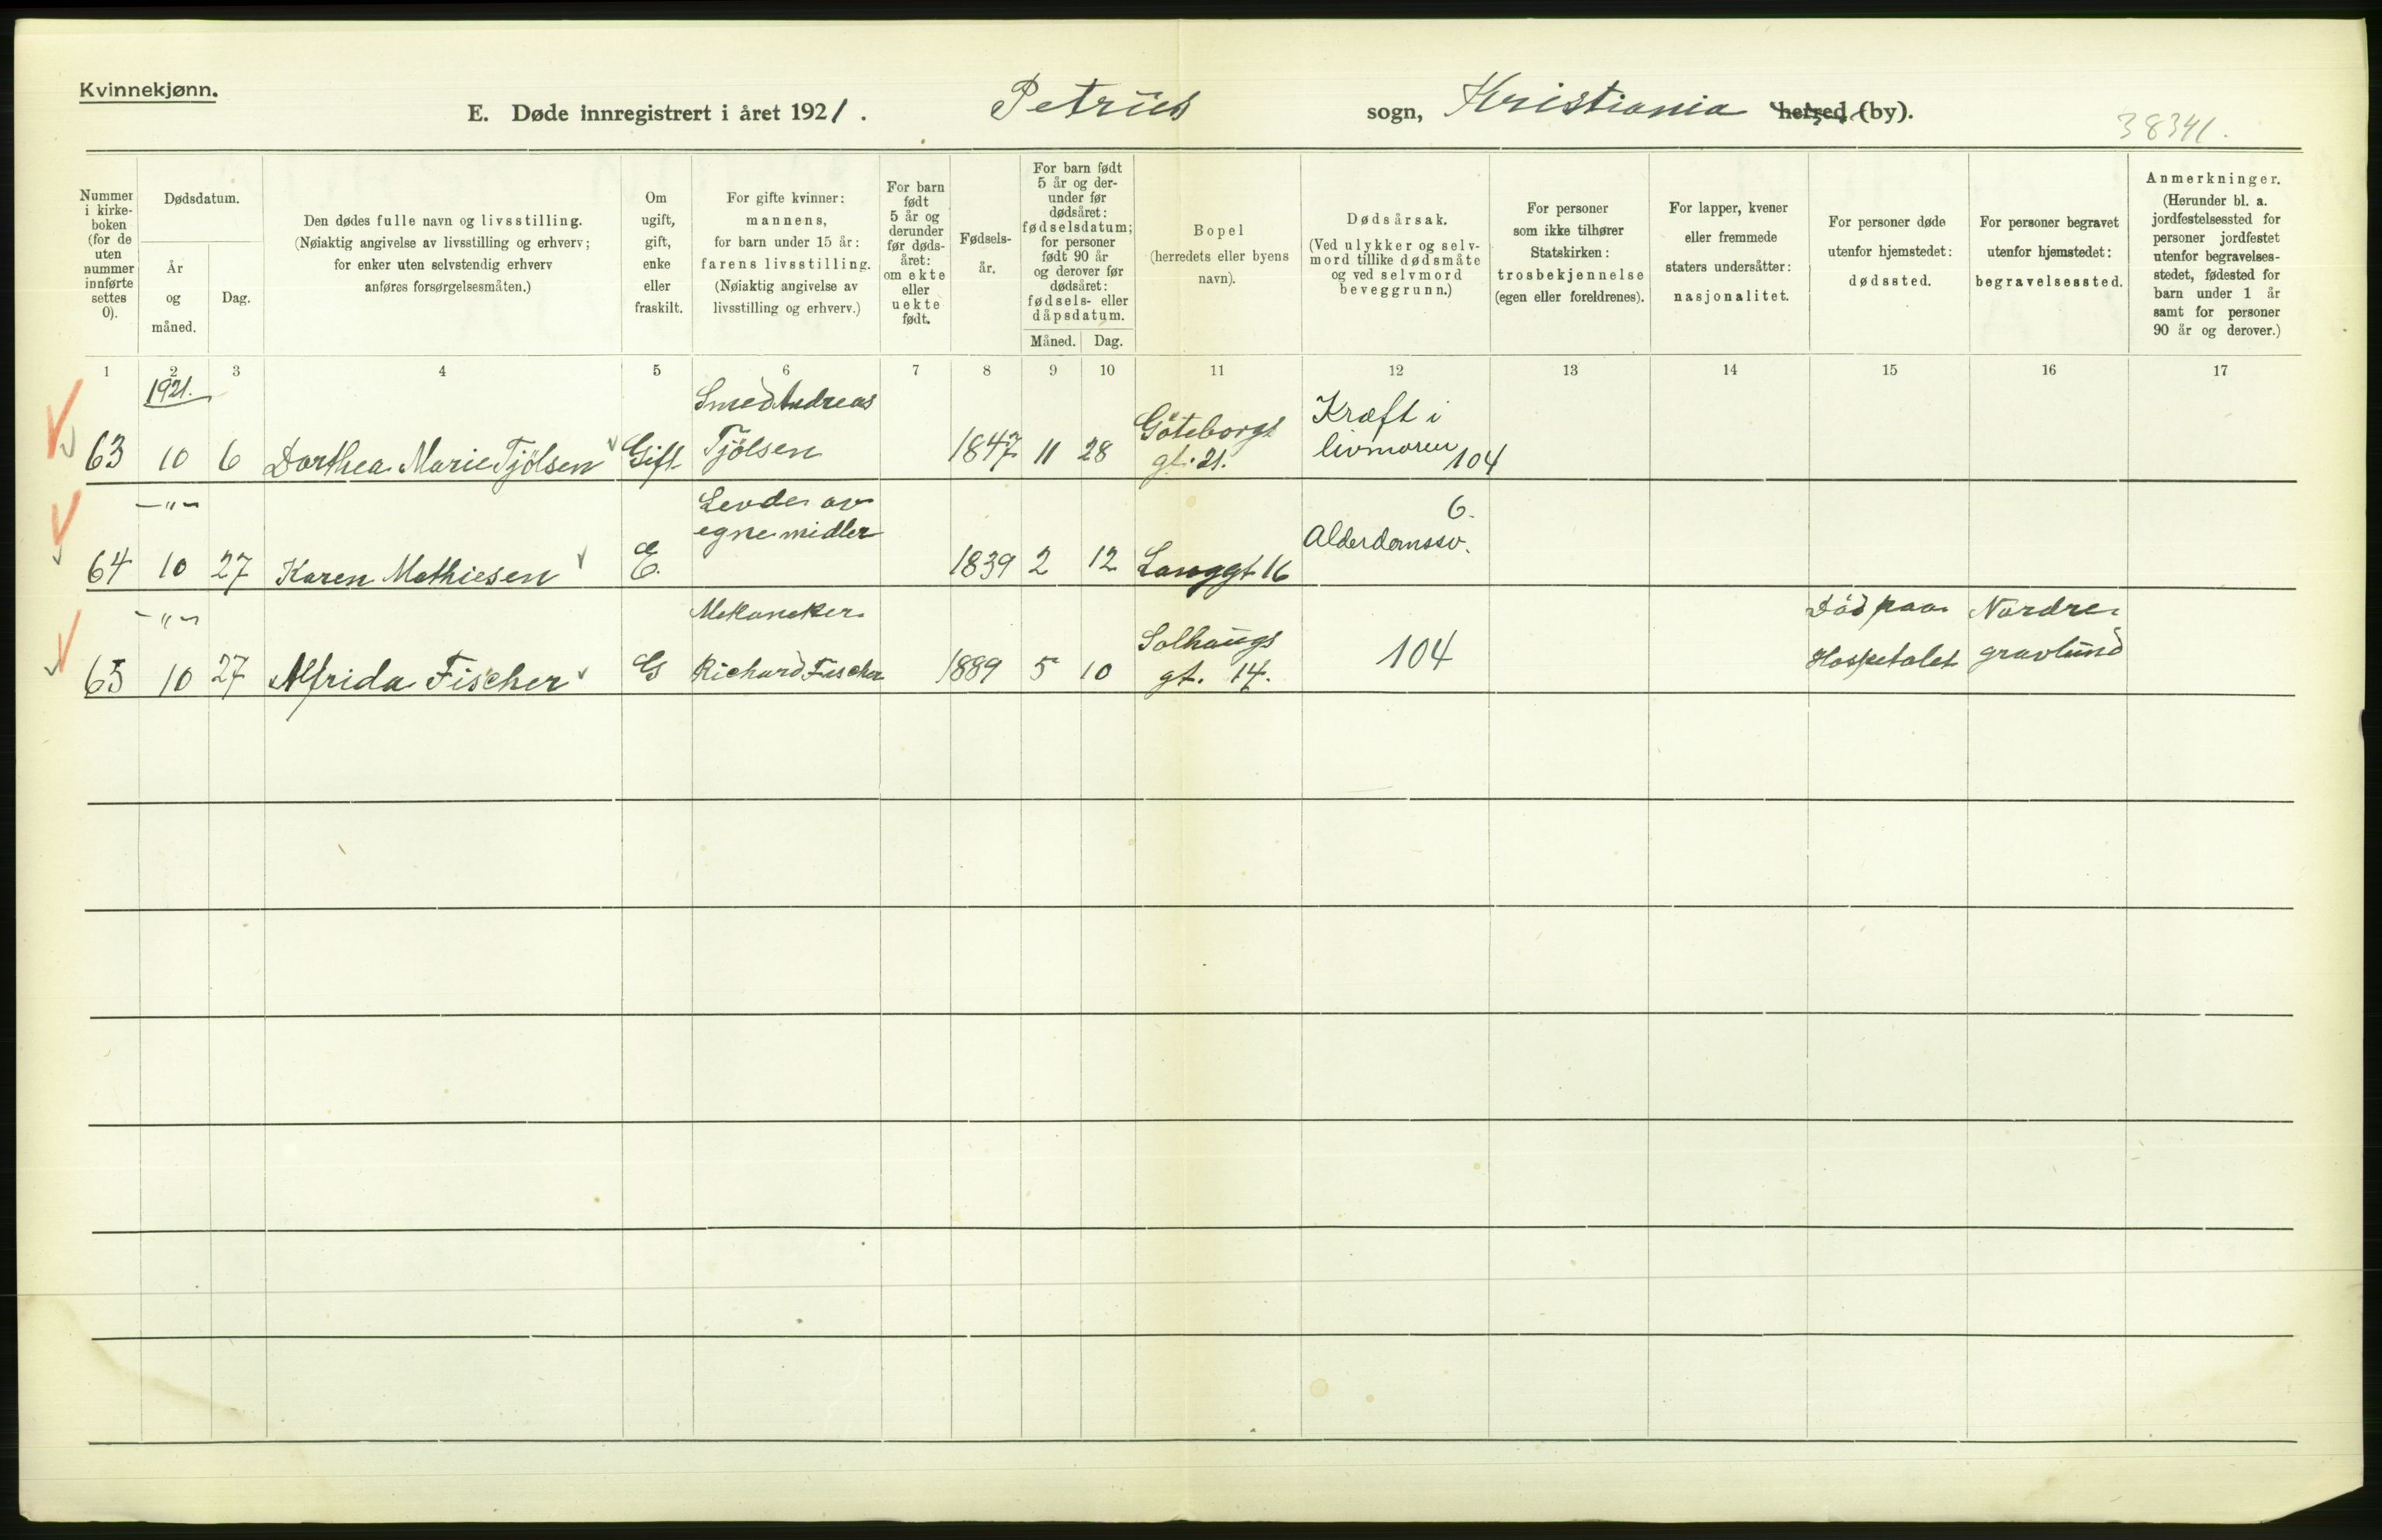 Kvinnekjønn.
E. Døde innregistrert i året 1921.
Petrus sogn, Kristiania herred (by).
38341.
Nummer i kirke-boken (for de uten nummer innførte settes 0).
Dødsdatum.
År og måned.
Dag.
Den dødes fulle navn og livsstilling.
(Nøiaktig angivelse av livsstilling og erhverv;
for enker uten selvstendig erhverv
anføres forsørgelsesmåten.)
Om ugift, gift, enke eller fraskilt.
For gifte kvinner:
mannens,
for barn under 15 år:
farens livsstilling.
(Nøiaktig angivelse av
livsstilling og erhverv.)
For barn født 5 år og derunder før døds-året: om ekte eller uekte født.
Fødsels-år.
For barn født
5 år og der-
under før
dødsåret:
fødselsdatum;
for personer
født 90 år
og derover før
dødsåret:
fødsels- eller
dåpsdatum.
Måned. Dag.
Bopel
(herredets eller byens
navn).
Dødsårsak.
(Ved ulykker og selv-
mord tillike dødsmåte
og ved selvmord
beveggrunn.)
For personer
som ikke tilhører
Statskirken:
trosbekjennelse
(egen eller foreldrenes).
For lapper, kvener
eller fremmede
staters undersåtter:
nasjonalitet.
For personer døde
utenfor hjemstedet:
dødssted.
For personer begravet
utenfor hjemstedet:
begravelsessted.
Anmerkninger.
(Herunder bl. a.
jordfestelsessted for
personer jordfestet
utenfor begravelses-
stedet, fødested for
barn under 1 år
samt for personer
90 år og derover.)
1 2 3 4 5 6 7 8 9 10 11 12 13 14 15 16 17
1921.
Smed Andreas
Kræft i
63 10 6 Dorthea Marie Tjölsen Gift Tjölsen 1847 11 28 Göteborg gt. 21. livmoren 104
—"— Levde av
egne midler 6.
64 10 27 Karen Mathiesen E. 1839 2 12 Langgt 16 Alderdomssv.
—"— Mekaneker
65 10 27 Alfrida Fischer G Richard Fischer 1889 5 10 Solhaugs gt. 14. 104 Död paa Hospetalet Nordre gravlund